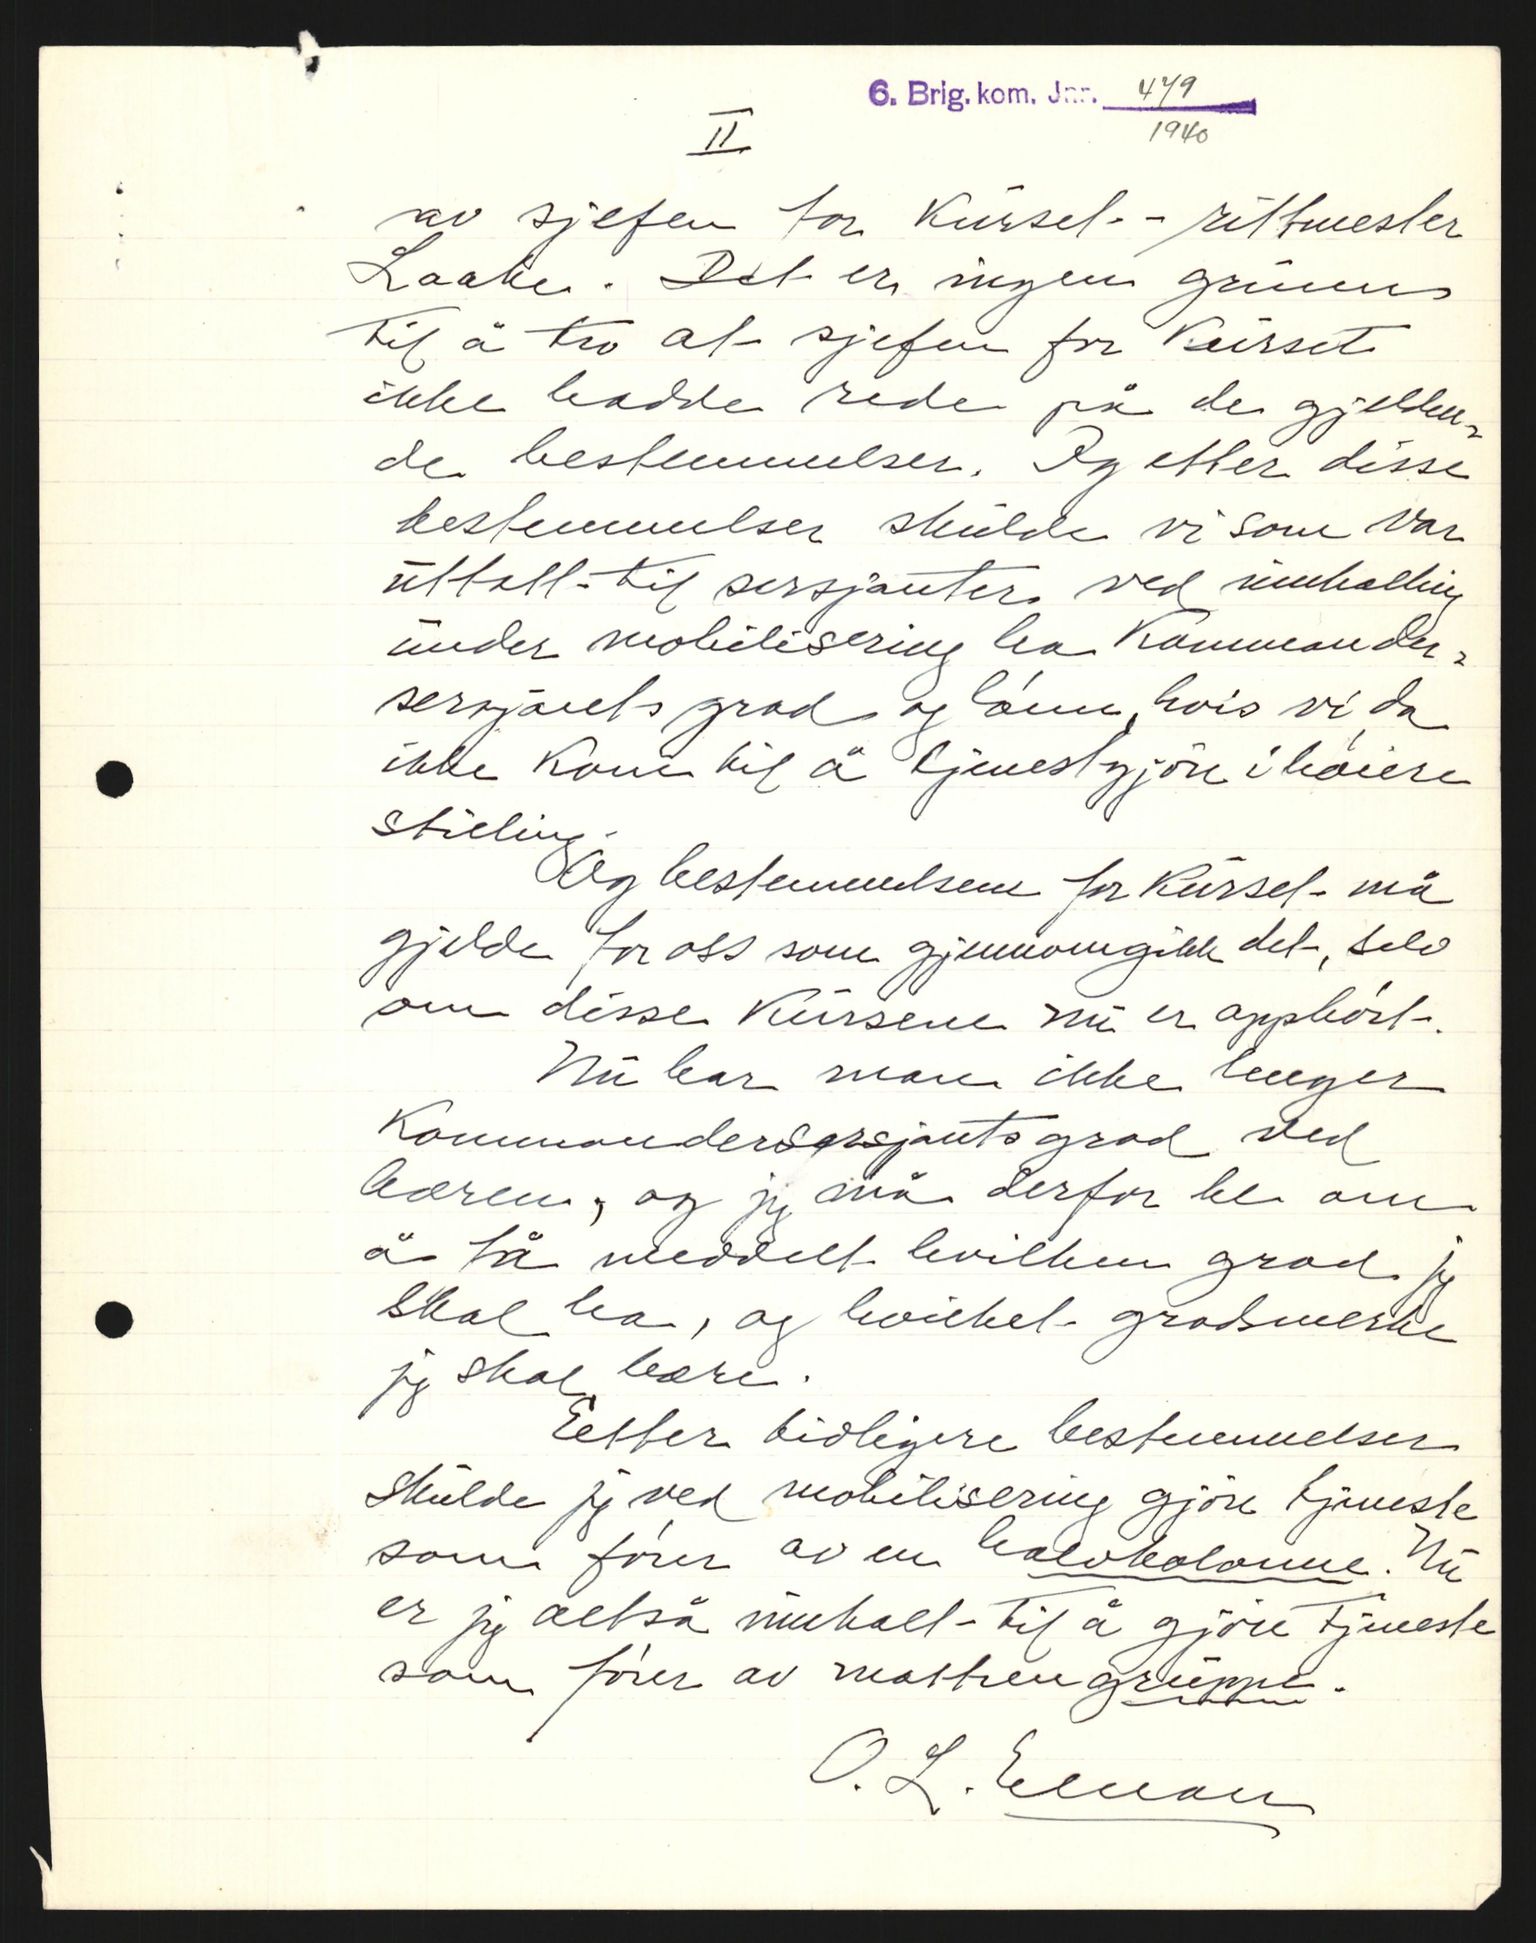 6. Brig. kom. Jnr. 479
1940
II
av sjefen for kurset - rittmester
Laake. Det er ingen grunn
til å tro at sjefen for kurset
ikke hadde rede på de gjelden-
de bestemmelser. Og etter disse
bestemmelser skulde vi som var
uttatt til sersjanter ved innkalling
under mobilisering ha Kommander-
sersjants grad og lønn, hvis vi da
ikke kom til å tjenestgjöre i høiere
stilling.
Og bestemmelsene for kurset må
gjelde for oss som gjennomgikk det, selv
om disse kursene nu er opphört.
Nu har man ikke lenger
Kommandersersjants grad ved
hæren, og jeg må derfor be om
å få meddelt hvilken grad jeg
skal ha, og hvilket gradsmerke
jeg skal bære.
Etter tidligere bestemmelser
skulde jeg ved mobilisering gjöre tjeneste
som förer av en halvkolonne. Nu
er jeg altså innkalt til å gjöre tjeneste
som förer av matrengruppe.
O. L. Elman